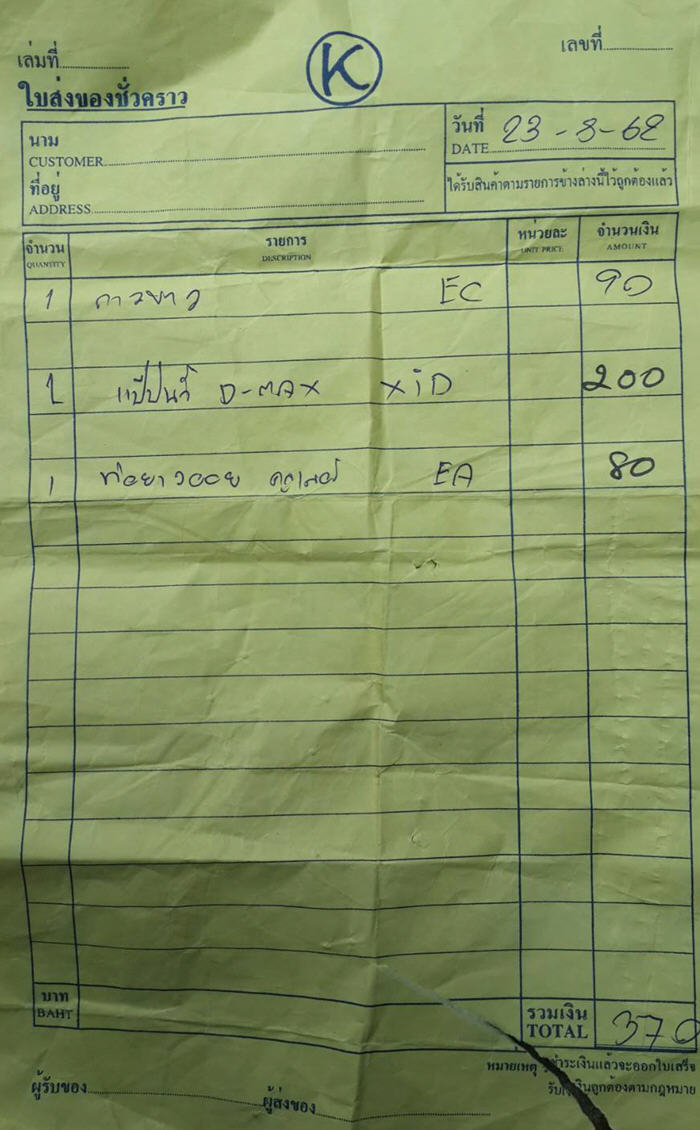 K
เล่มที่ เลขที่
ใบส่งของชั่วคราว
นาม
CUSTOMER
ที่อยู่
ADDRESS
วันที่
DATE 23-8-62
ได้รับสินค้าตามรายการข้างล่างนี้ไว้ถูกต้องแล้ว
จำนวน รายการ หน่วยละ จำนวนเงิน
QUANTITY DESCRIPTION UNIT PRICE AMOUNT
1 กาวยาว EC 90
1 แป๊ปน้ำ D-MAX XiD 200
1 ท่อยาวออย EA 80
บาท รวมเงิน
BAHT TOTAL 370
หมายเหตุ ชำระเงินแล้วจะออกใบเสร็จ
เงินถูกต้องตามกฎหมาย
ผู้รับของ ผู้ส่งของ